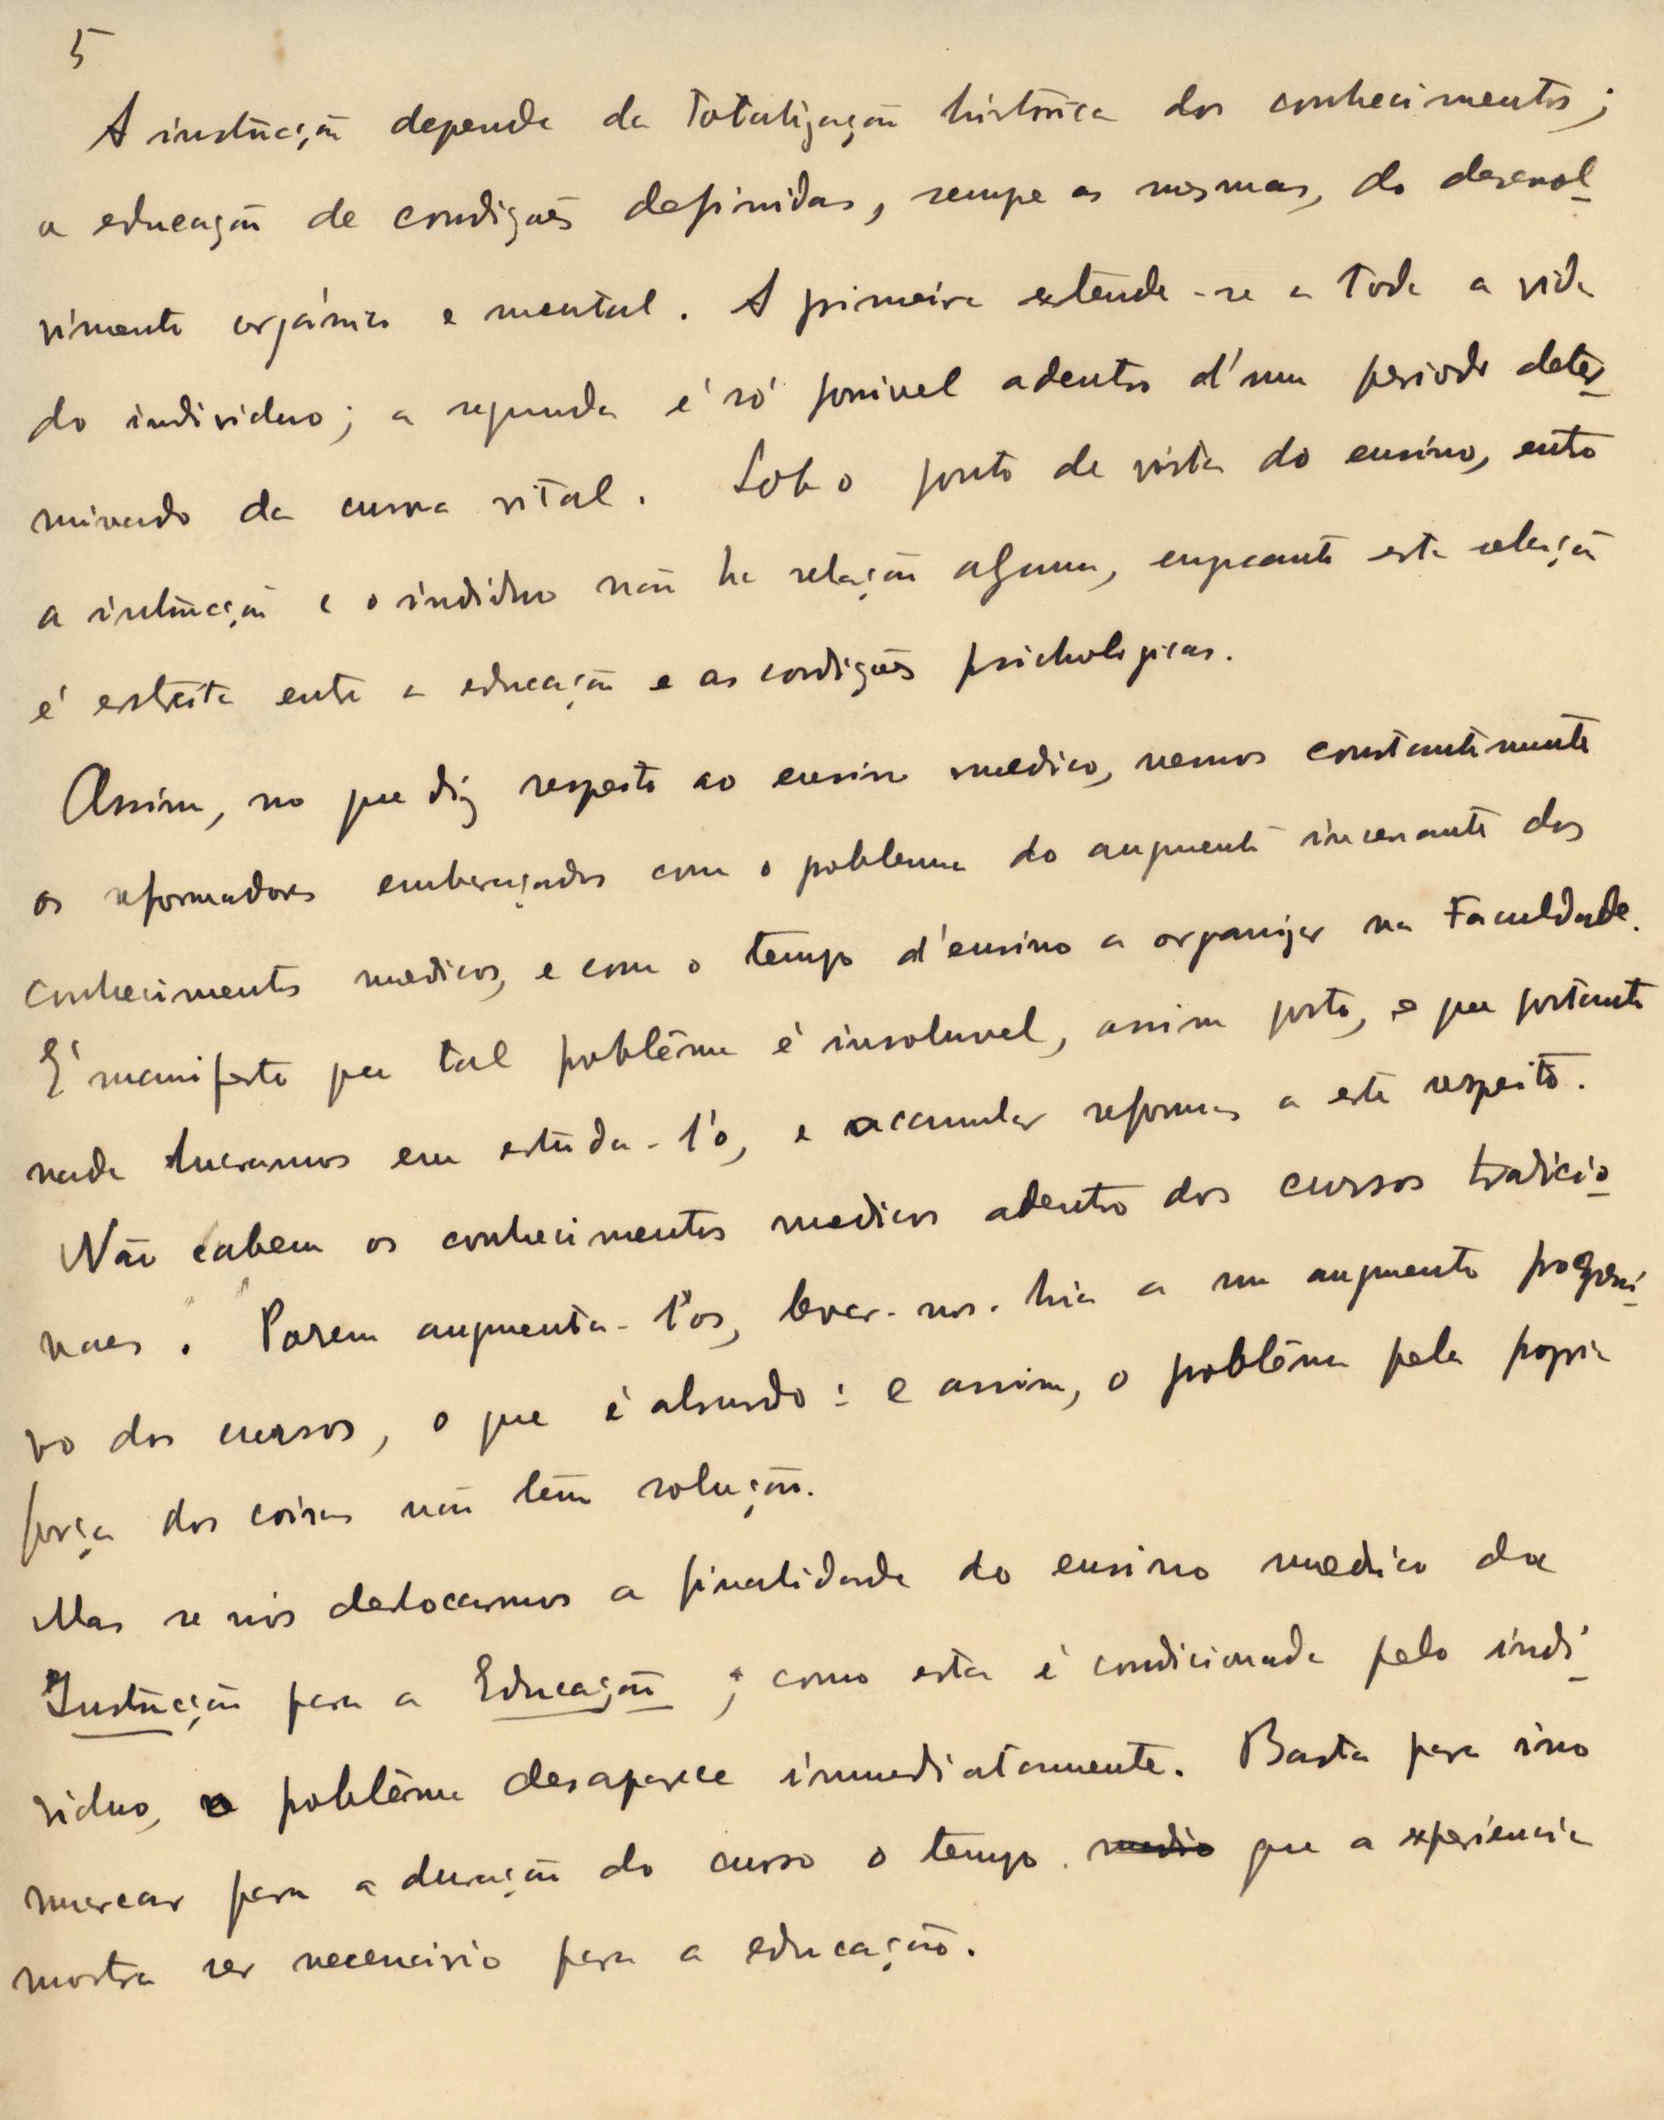 5
A instrucção depende da totalização historica dos conhecimentos;
a educação de condições definidas, sempre as mesmas, do desenvol-
vimento orgánico e mental. A primeira extende-se a toda a vida
do individuo; a segunda é só possivel adentro d'um periodo deter-
minado da curva vital. Sob o ponto de vista do ensino, entre
a instrucção e o indiduo não ha relação alguma, emquanto esta relação
é estreita entre a educação e as condições psichologicas.
Assim, no que diz respeito ao ensino medico, vemos constantemente
os reformadores embaraçados com o problema do augmento incessante dos
conhecimentos medicos, e com o tempo d'ensino a organizar na Faculdade.
É manifesto que tal problêma é insoluvel, assim posto, e que portanto
nada lucramos em estuda-l'o, e accumular reformas a este respeito.
Não cabem os conhecimentos medicos adentro dos cursos tradicio-
naes. Porem augmenta-l'os, levar-nos-hia a um augmento progressi-
vo dos cursos, o que é absurdo: e assim, o problêma pela propria
força das coisas não têm solução.
Mas se nós deslocarmos a finalidade do ensino medico da
Instrucção para a Educação; como esta é condicionada pelo indi-
viduo, o problêma desaparece immediatamente. Basta para isso
marcar para a duração do curso o tempo medio que a experiencia
mostra ser necessario para a educação.